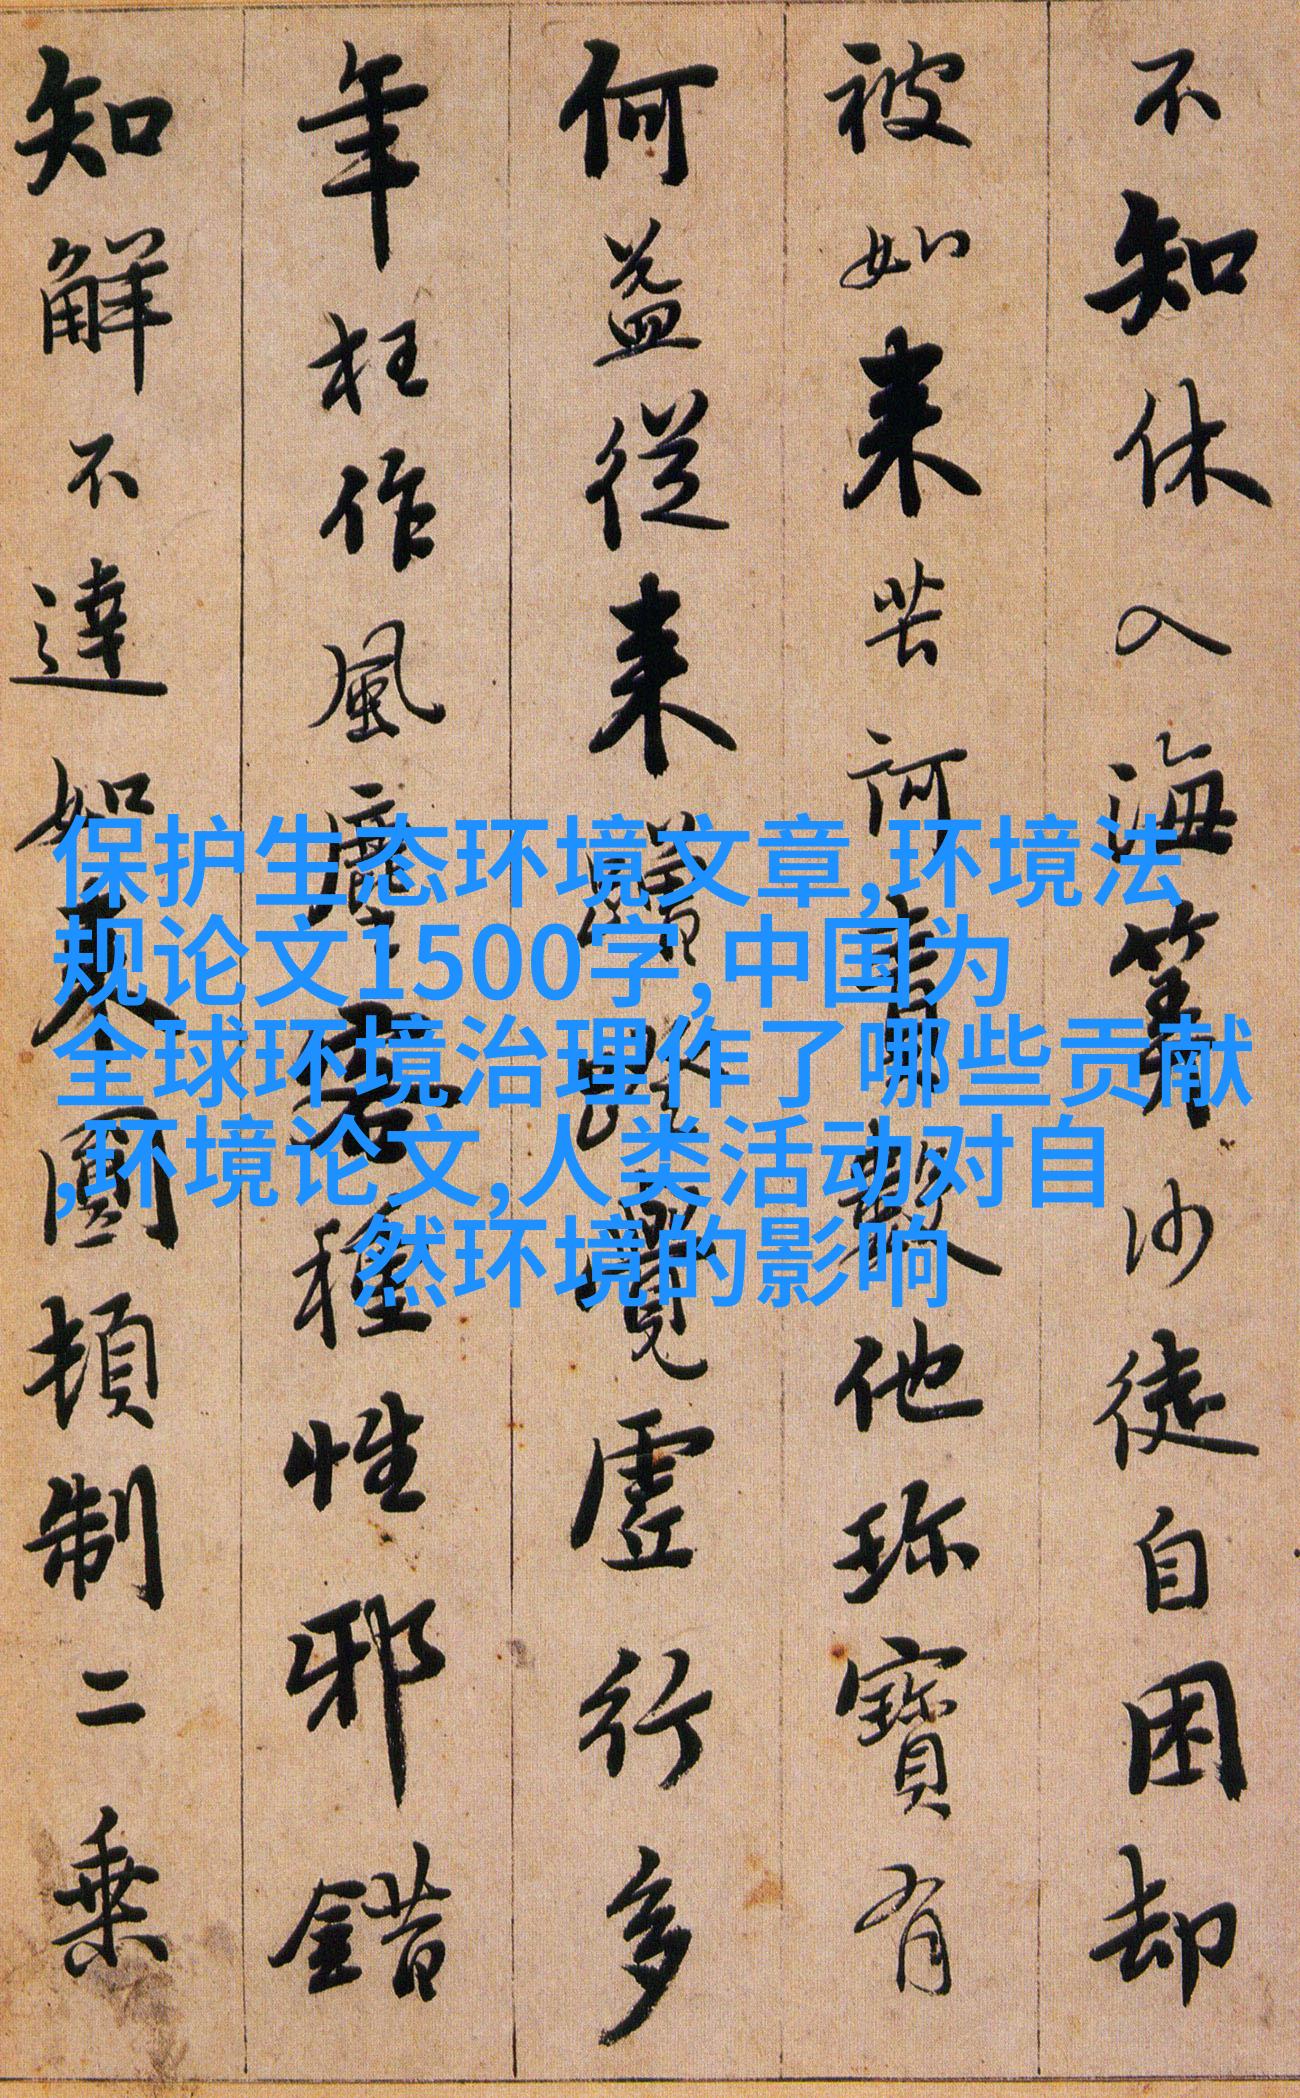 不知休入海筭沙徒自困却
被如来苦訶責數他珎寶有
何益從来蹭蹬覺虛行多
年枉作風塵客種性邪錯
知解不達如来圓頓制二乗
保护生态环境文章,环境法
规论文1500字,中国为
全球环境治理作了哪些贡献
,环境论文,人类活动对自
然环境的影响